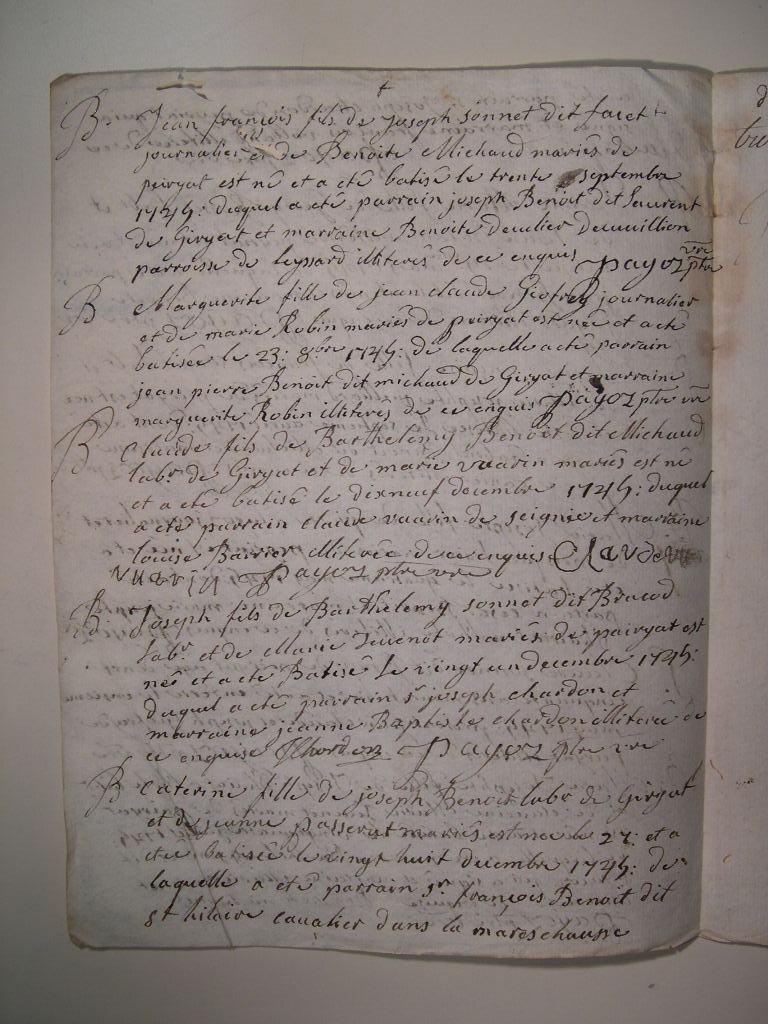 B. Jean françois fils de Joseph Sonnet dit faret
journalier et de Benoite Michaud mariés de
peiryat est né et a eté batisé le trente septembre
174 : duquel a eté parrain joseph Benoit dit laurent
de Giryat et marraine Benoite
parroisse de leyssard illiterés de ce enquis payoz ptre vre
B Marguerite fille de jean claude Giofrey journalier
et de marie Robin mariés de peiryat est née et a eté
batisee le 23: 8bre 174 : de laquelle a eté parrain
jean pierre Benoit dit michaud de Giryat et marraine
marguerite Robin illiterés de ce enquis payoz ptre vre
B Claude fils de Barthelemy Benoit dit Michaud
labr de Giryat et de marie vuarin mariés est né
et a eté batisé le dixneuf decembre 174 : duquel
a eté parrain claude vuarin de seignie et marraine
louise Barrier illiterée de ce enquis Claude
vuarin payoz ptre vre
B: Joseph fils de Barthelemy sonnet dit
labr et de Marie Juenot mariés de pairyat est
neé et a eté Batisé le vingt un decembre 174 :
duquel a eté parrain sr joseph chardon et
marraine jeanne Baptiste chardon illiterée de
ce enquise payoz ptre vre
B Caterine fille de joseph Benoit labr de Giryat
et de jeanne passerat mariés est née le 27: et a
eté batisée le vingt huit decembre 174 : de
laquelle a eté parrain sr françois Benoit dit
st hilaire cavalier dans la mareschausse
d